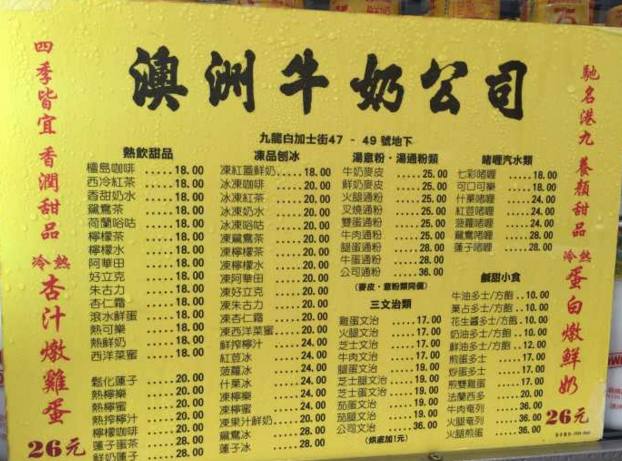 澳洲牛奶公司
九龍白加士街47 - 49 號地下
四季皆宜 香潤甜品
冷熱
杏汁燉雞蛋
26元
熱飲甜品
檀島咖啡 .....18.00
西冷紅茶 .....18.00
香甜奶水 .....18.00
鴛鴦茶 .....18.00
荷蘭哈咕 .....18.00
檸檬茶 .....18.00
檸檬水 .....18.00
阿華田 .....18.00
好立克 .....18.00
朱古力 .....18.00
杏仁霜 .....18.00
滾水鮮蛋 .....18.00
熱可樂 .....18.00
熱鮮奶 .....18.00
西洋菜蜜 .....18.00
鬆化蓮子 .....20.00
熱檸樂 .....20.00
熱檸蜜 .....20.00
熱鮮檸汁 .....20.00
檸檬咖啡 .....20.00
蓮子蛋茶 .....28.00
鮮奶蓮子 .....28.00
凍品刨冰
凍紅蓋鮮奶 .....18.00
冰凍咖啡 .....20.00
冰凍紅茶 .....20.00
冰凍奶水 .....20.00
冰凍哈咕 .....20.00
凍鴛鴦茶 .....20.00
凍檸檬茶 .....20.00
凍檸檬水 .....20.00
凍阿華田 .....20.00
凍好立克 .....20.00
凍朱古力 .....20.00
凍杏仁霜 .....20.00
凍西洋菜蜜 .....20.00
鮮搾檸汁 .....24.00
紅荳冰 .....24.00
菠蘿冰 .....24.00
什菓冰 .....24.00
凍檸樂 .....24.00
凍檸蜜 .....24.00
凍果汁鮮奶 .....20.00
鴛鴦冰 .....28.00
蓮子冰 .....28.00
湯意粉・湯通粉類
牛奶麥皮 .....25.00
鮮奶麥皮 .....25.00
火腿通粉 .....25.00
叉燒通粉 .....25.00
雙蛋通粉 .....25.00
牛肉通粉 .....25.00
腿蛋通粉 .....28.00
牛蛋通粉 .....28.00
公司通粉 .....36.00
(麥皮、意粉類同價)
三文治類
雞蛋文治 .....17.00
火腿文治 .....17.00
芝士文治 .....17.00
牛肉文治 .....17.00
腿蛋文治 .....19.00
芝士腿文治 .....19.00
芝士蛋文治 .....19.00
茄蛋文治 .....19.00
茄腿文治 .....19.00
公司文治 .....36.00
(烘底加1元)
啫喱汽水類
七彩啫喱 .....18.00
可口可樂 .....18.00
什菓啫喱 .....24.00
紅荳啫喱 .....24.00
菠蘿啫喱 .....24.00
鴛鴦啫喱 .....28.00
蓮子啫喱 .....28.00
鹹甜小食
牛油多士/方飽 ..10.00
菓占多士/方飽 ..10.00
花生醬多士/方飽 ..10.00
奶油多士/方飽 ..10.00
鮮油多士/方飽 ..12.00
煎蛋多士 .....17.00
炒蛋多士 .....17.00
煎雙雞蛋 .....17.00
法蘭西多 .....20.00
牛肉奄列 .....36.00
火腿奄列 .....36.00
火腿煎蛋 .....36.00
馳名港九 養顏甜品
冷熱
蛋白燉鮮奶
26元